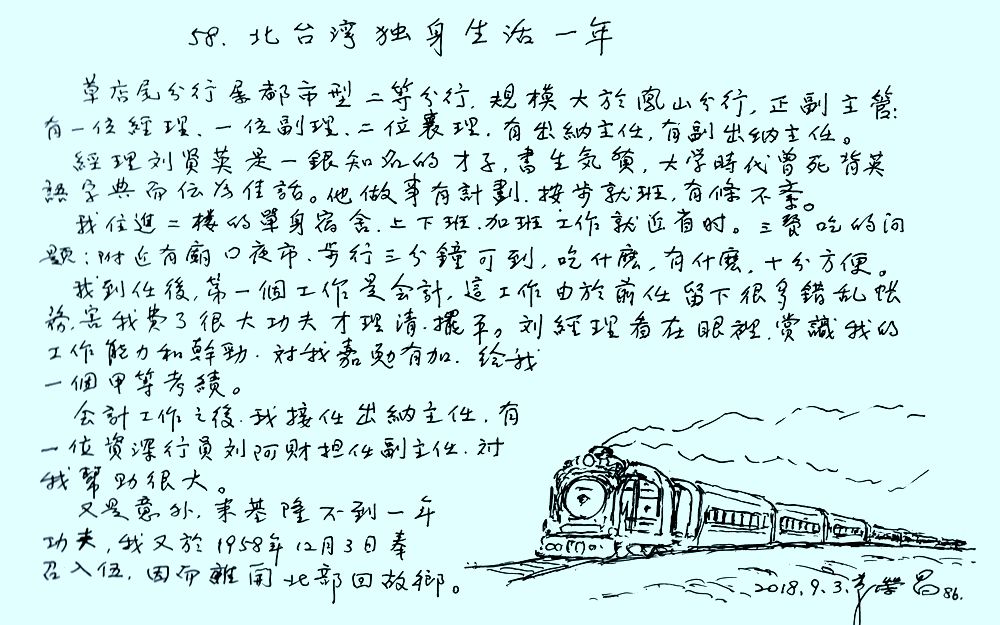 58. 北台湾独身生活一年
草店尾分行属都市型二等分行，規模大於鳳山分行，正副主管：
有一位經理、一位副理、二位襄理，有出納主任，有副出納主任。
經理刘賢英是一銀知名的才子，書生気質，大学時代曾死背英
語字典而伝為佳話。他做事有計劃，按步就班，有條不紊。
我住進二楼的單身宿舍，上下班、加班工作就近省时。三餐吃的问
題：附近有廟口夜市，步行三分鐘可到，吃什麽，有什麽，十分方便。
我到任後，第一個工作是会計，這工作由於前任留下很多錯乱帐
務，害我費了很大功夫才理清、擺平。刘經理看在眼裡，賞識我的
工作能力和幹勁，対我嘉勉有加，给我
一個甲等考績。
会計工作之後，我接任出納主任，有
一位資深行员刘阿財担任副主任，対
我幫助很大。
又是意外，来基隆不到一年
功夫，我又於1958年12月3日奉
召入伍，因而離開北部回故鄉。
2018.9.3. 學昌 86.